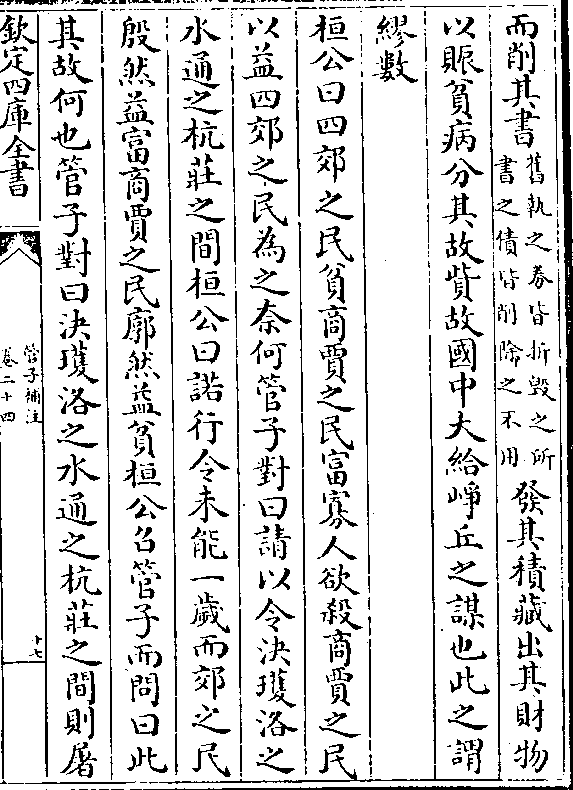 而削其書
舊執之券皆折毀之所
書之債皆削除之不用
發其積藏出其財物
以賑貧病分其故貲故國中大給崢丘之謀也此之謂
繆數
桓公曰四郊之民貧商賈之民富寡人欲殺商賈之民
以益四郊之民為之奈何管子對曰請以令決瓊洛之
水通之杭莊之間桓公曰諾行令未能一歲而郊之民
殷然益富商賈之民廓然益貧桓公召管子而問曰此
其故何也管子對曰決瓊洛之水通之杭莊之間則屠
欽定四庫全書
管子補注
卷二十四
十七